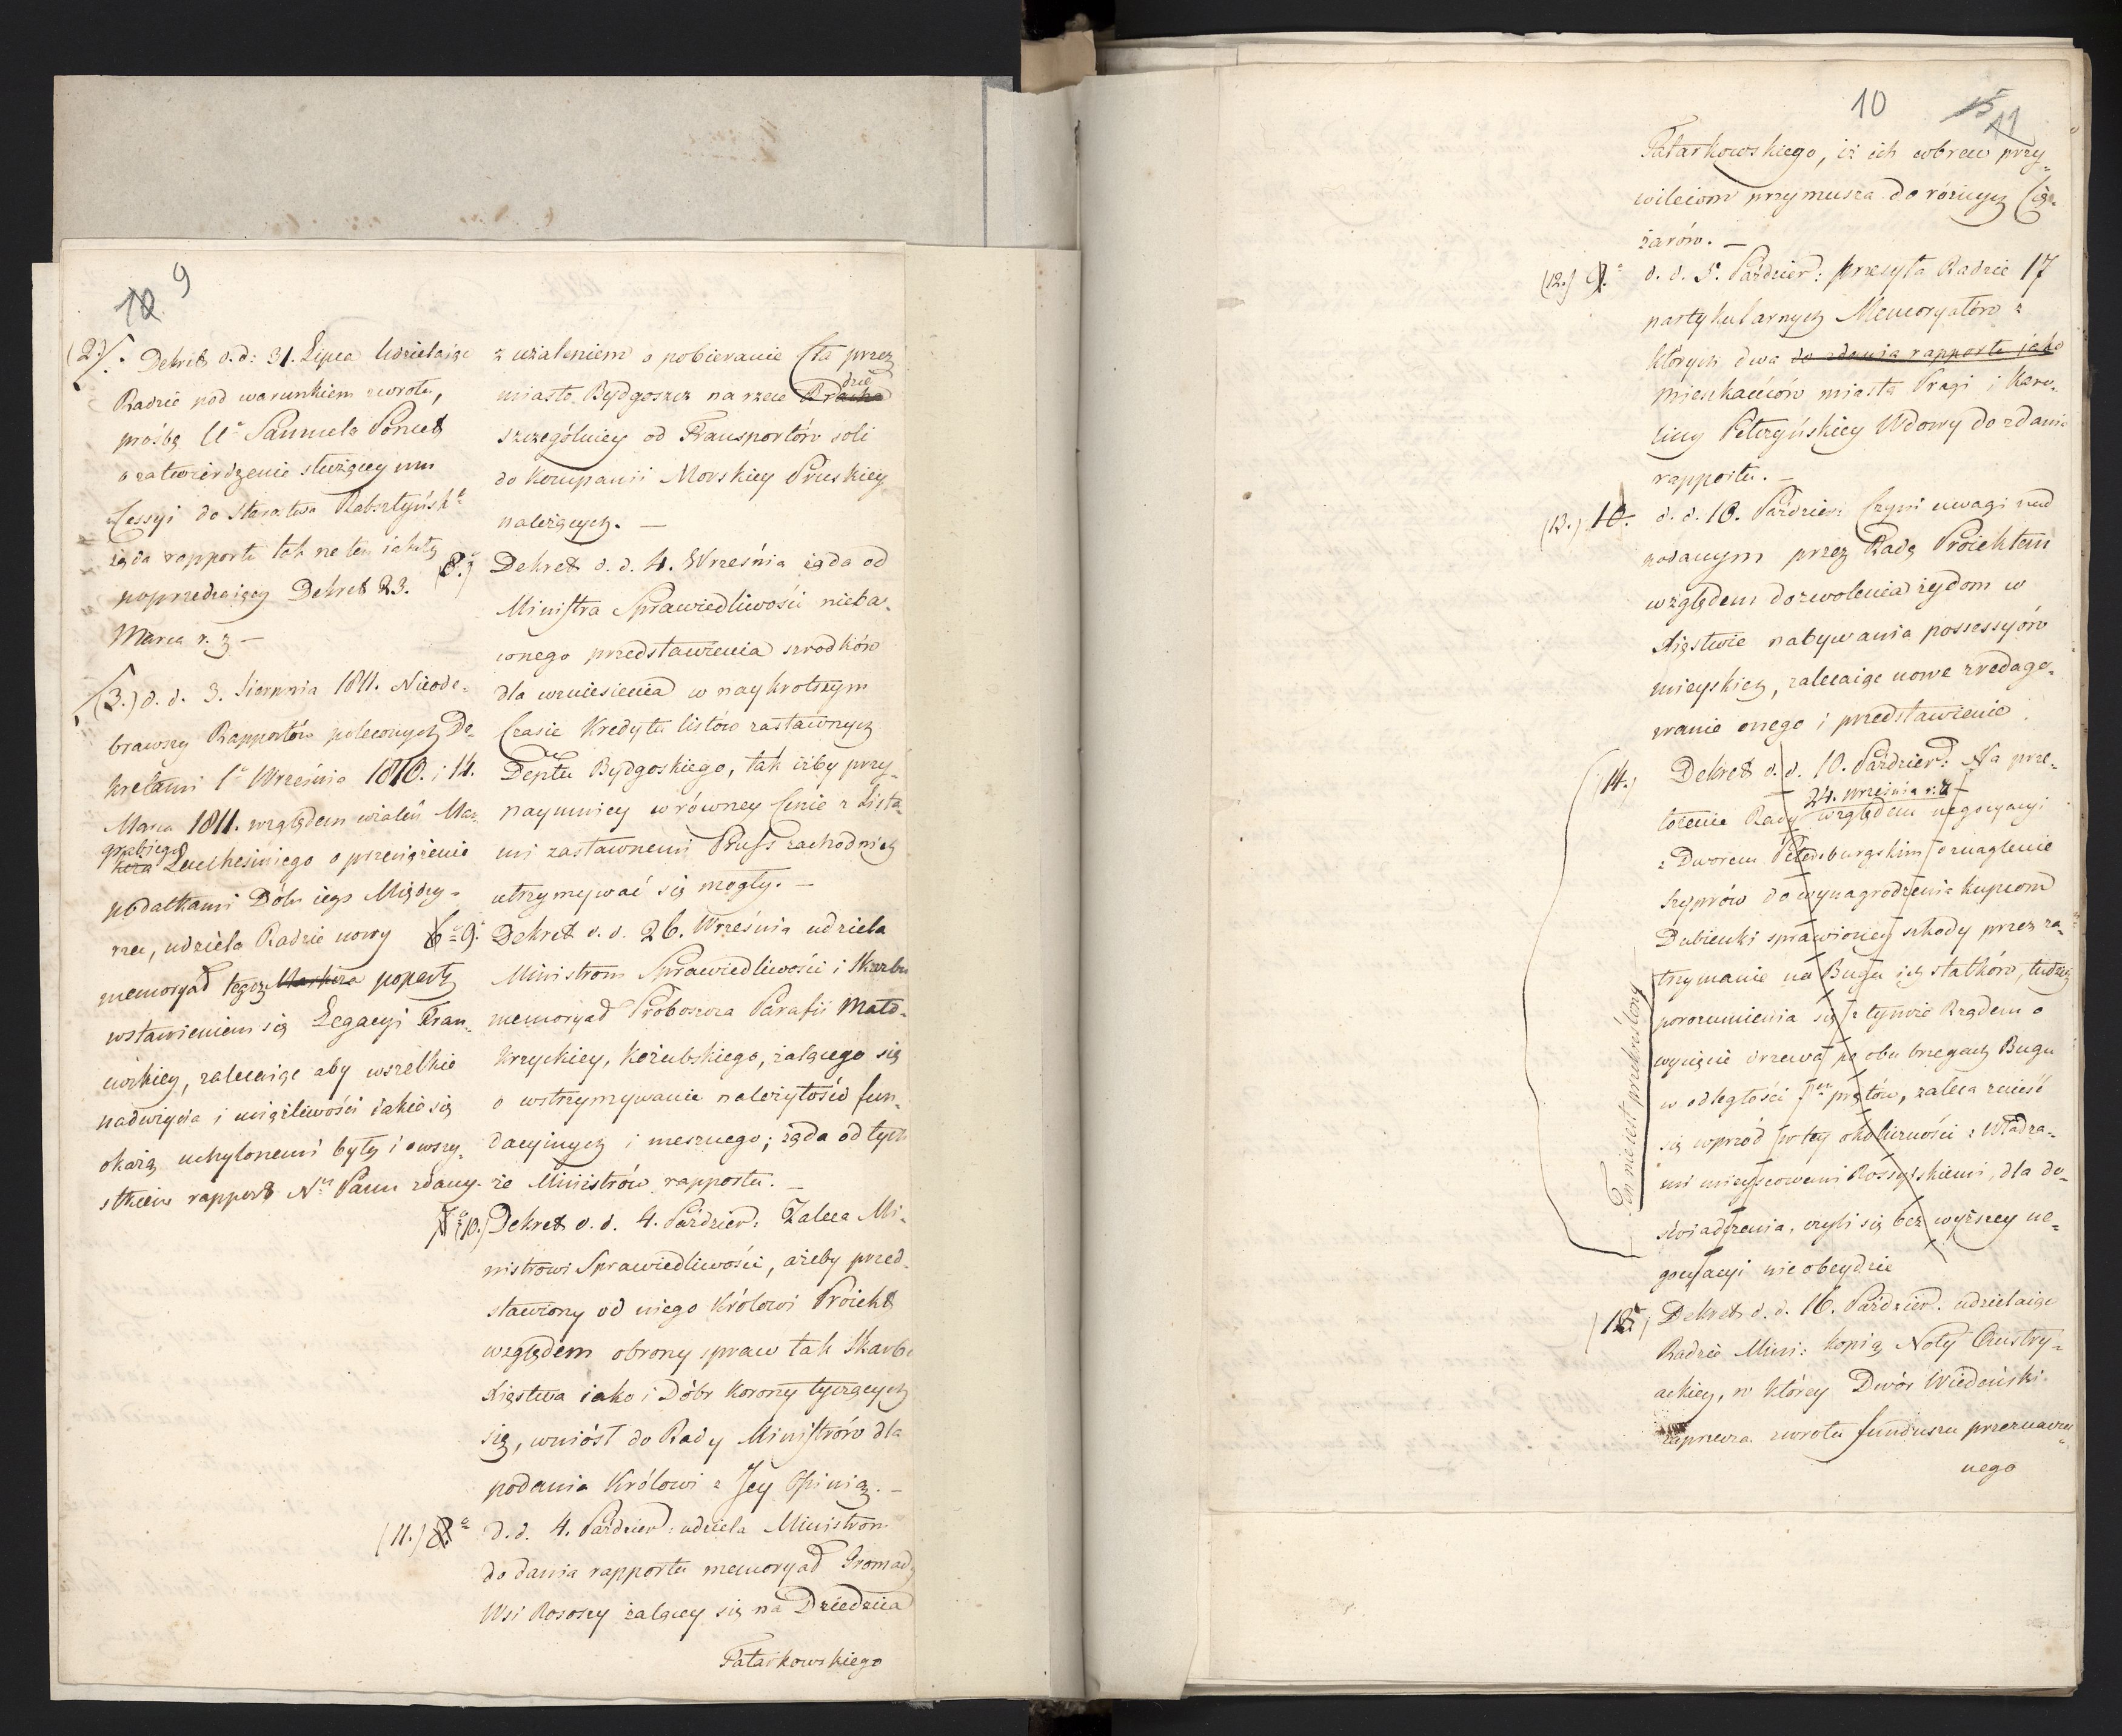 10 9
(2.)
Dekret d. d: 31. Lipca Udzielaiąc
Radzie pod warunkiem zwrotu,
prośbę Ur Samuela Poncet
o zatwierdzenie służącey mu
Cessyi do Starostwa Rabsztyńsko
żąda rapportu tak na ten iak i ty
poprzedzaiący Dekret 23.
Marca r. z –
(3.) d. d. 3. Sierpnia 1811. Nieode-
brawszy Rapportów poleconych De-
kretami 1o Września 1810. i 14.
Marca 1811. względem użaleń Mar-
grabiego
Lucchesiniego o przeciążenie
podatkami Dóbr iego Między-
rzec, udziela Radzie nowy
memoryał tegoż Markiza poparty
wstawieniem się Legacyi Fran-
cuzkiey, zalecaiąc aby wszelkie
nadużycia i uciążliwości iakie się
okażą uchylonemi były i o wszy-
stkiem rapport Nu Panu zdany.
z użaleniem o pobieranie Cła przez
miasto Bydgoszcz na rzece Bracha
dzie
szczególniey od Transportów soli
do Kompanii Morskiey Pruskiey
należących. –
(8.) Dekret d. d. 4. Września żąda od
Ministra Sprawiedliwości nieba-
wnego przedstawienia szrodków
dla wzniesienia w naykrotszym
Czasie Kredytu listów zastawnych
Deptu Bydgoskiego, tak iżby przy-
naymniey w równey Cenie z Lista-
mi zastawnemi Pruss zachodnich
utrzymywać się mogły. –
6o 9. Dekret d. d. 26. Września udziela
Ministrom Sprawiedliwości i Skarbu
memoryał Proboszcza Parafii Mało-
krzyckiey, Kożubskiego, żalącego się
o wstrzymywanie należytości fun-
dacyinych i mesznego; żąda od tych
że Ministrów rapportu. –
(10.) Dekret d. d. 4. Paździer: Zaleca Mi-
nistrowi Sprawiedliwości, ażeby przed-
stawiony od niego Królowi Proiekt
względem obrony spraw tak Skarbu
Xięstwa iako i Dóbr Korony tyczących
się, wniósł do Rady Ministrów dla
podania Królowi z Jey Opinią. –
(11.) 8o d. d. 4. Paździer: udziela Ministrom
do dania rapportu memoryał Gromady
Wsi Rososzy żalącey się na Dziedzica
Tatarkowskiego
10 15 11
Tatarkowskiego, iż ich wbrew przy-
wileiom przymusza do różnych Cię-
żarów. –
(12.) 9. d. d. 5. Paździer: przesyła Radzie 17
partykularnych Memoryałów z
których dwa do zdania rapportu jako
mieszkańców miasta Pragi i Karo-
liny Petczyńskiey Wdowy do zdania
rapportu. –
(13.) 10. d. d. 10. Paździer: Czyni uwagi nad
podanym przez Radę Proiektem
względem dozwolenia żydom w
Xięstwie nabywania possessyów
mieyskich, zalecaiąc nowe zredago-
wanie onego i przedstawienie.
(14.) Dekret d. d. 10. Paździer: Na prze-
24. Września r. z
łożenie Rady względem negocyacyi
z Dworem Petersburgskim o znaglenie
Szyprów do wynagrodzenia kupcom
Dubienki sprawioney szkody przez za-
trzymanie na Bugu ich statków, tudzież
porozumienia się z tymże Rządem o
wycięcie drzewa po obu brzegach Bugu
w odległości prętów, zaleca znieść
się wprzód w tey okoliczności z Władza-
mi mieyscowemi Rossyiskiemi, dla do-
świadczenia, czyli się bez wyższey ne-
gocyacyi nie obeydzie
Ten nie iest przekreślony
(15) Dekret d. d. 16. Paździer. udzielaiąc
Radzie Mini: kopią Noty Austry-
ackiey, w którey Dwór Wiedeński
zaprzecza zwrotu funduszu przeznaczo-
nego